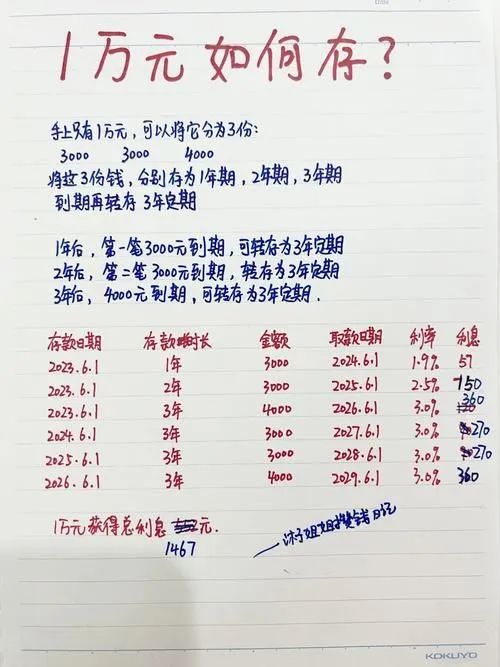 1万元如何存?
手上只有1万元,可以将它分为3份:
3000 3000 4000
将这3份钱,分别存为1年期,2年期,3年期
到期再转存3年定期
1年后,第一笔3000元到期,可转存为3年定期
2年后,第二笔3000元到期,转存为3年定期
3年后,4000元到期,可转存为3年定期.
存款日期 存款时长 金额 取款日期 利率 利息
2023.6.1 1年 3000 2024.6.1 1.9% 57
2023.6.1 2年 3000 2025.6.1 2.5% 150
2023.6.1 3年 4000 2026.6.1 3.0% 360
2024.6.1 3年 3000 2027.6.1 3.0% 270
2025.6.1 3年 3000 2028.6.1 3.0% 270
2026.6.1 3年 4000 2029.6.1 3.0% 360
1万元获得总利息 元.
1467
姐姐攒钱日记
KOKUYO